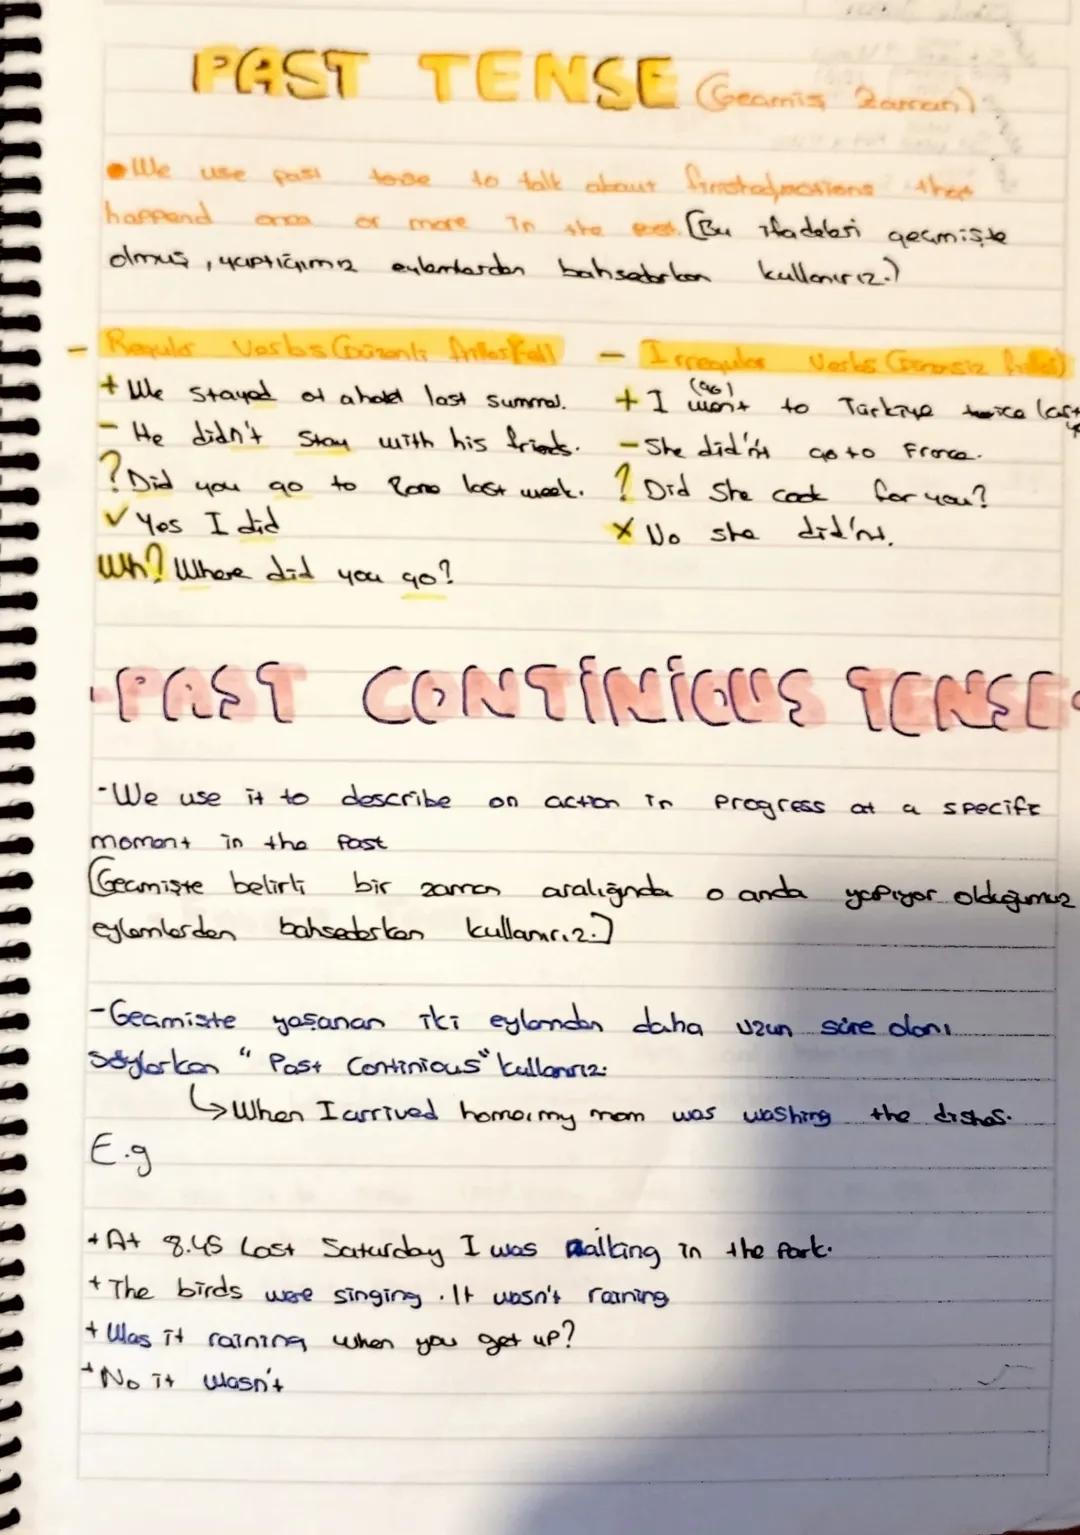 PAST TENSE (Geçmiş Zaman)
• We use past tense to talk about finished actions that
happend once or more in the past. (Bu ifadeleri geçmişte
olmuş, yaptığımız eylemlerden bahsederken kullanırız.)
- Regular Verbs (Düzenli fiiller)
+ We stayed at a hotel last summer.
- He didn't stay with his friends.
? Did you go to Rome last week.
✓ Yes I did
Wh? Where did you go?
- Irregular Verbs (Düzensiz fiiller)
(go)
+ I went to Türkiye twice last
- She did'nt go to France.
? Did She cook for you?
X No she did'nt.
• PAST CONTİNİOUS TENSE •
- We use it to describe an action in progress at a specific
moment in the past
(Geçmişte belirli bir zaman aralığında o anda yapıyor olduğumuz
eylemlerden bahsederken kullanırız.)
- Geçmişte yaşanan iki eylemden daha uzun süre olanı
söylerken "Past Continious" kullanırız.
↳ When I arrived home, my mom was washing the dishes.
E.g
+ At 8.45 Last Saturday I was walking in the park.
+ The birds were singing. It wasn't raining
+ Was it raining when you get up?
+ No it wasn't